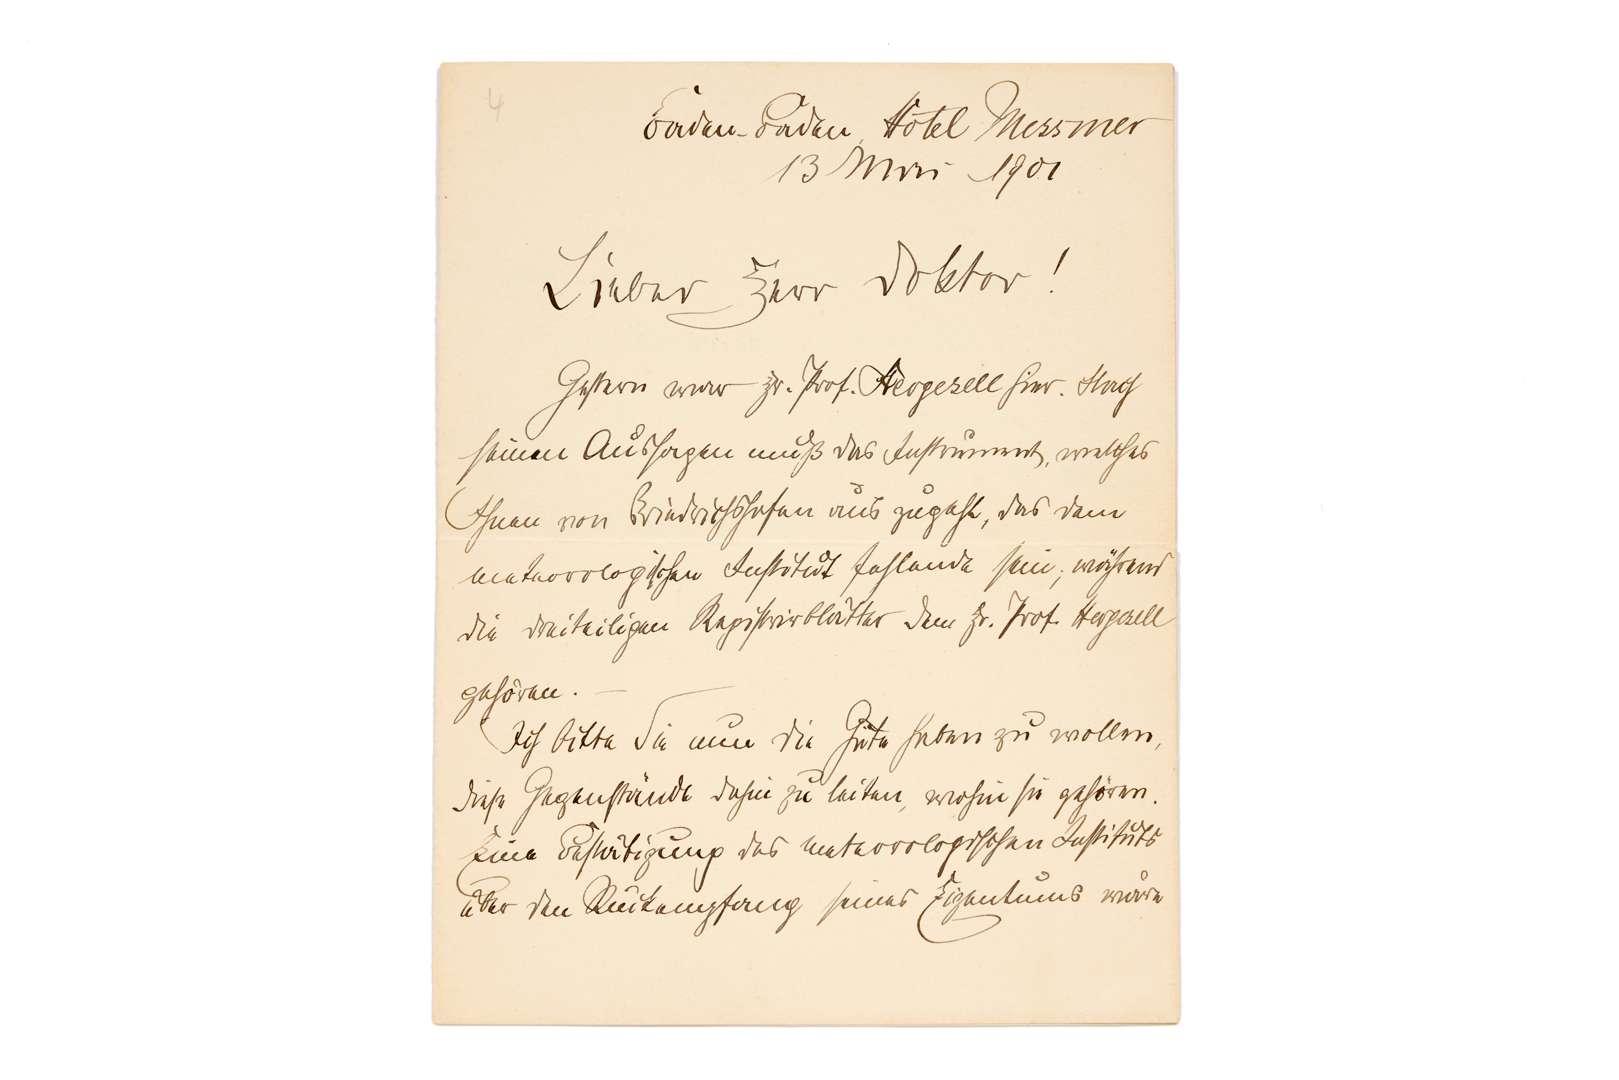 4
Baden-Baden, Hotel Messmer
13 Mai 1901
Lieber Herr Doktor!
Gestern war Hr. Prof. Hergesell hier. Nach
seinen Aussagen muß das Instrument, welches
Ihnen von Friedrichshafen aus zugeht, das dem
meteorologischen Institut fehlende sein, während
die dreiteiligen Registrirblätter dem Hr. Prof. Hergesell
gehören. —
Ich bitte Sie nun die Güte haben zu wollen,
diese Gegenstände dahin zu leiten, wohin sie gehören.
Eine Bestätigung des meteorologischen Instituts
über den Rückempfang seines Eigentums wäre